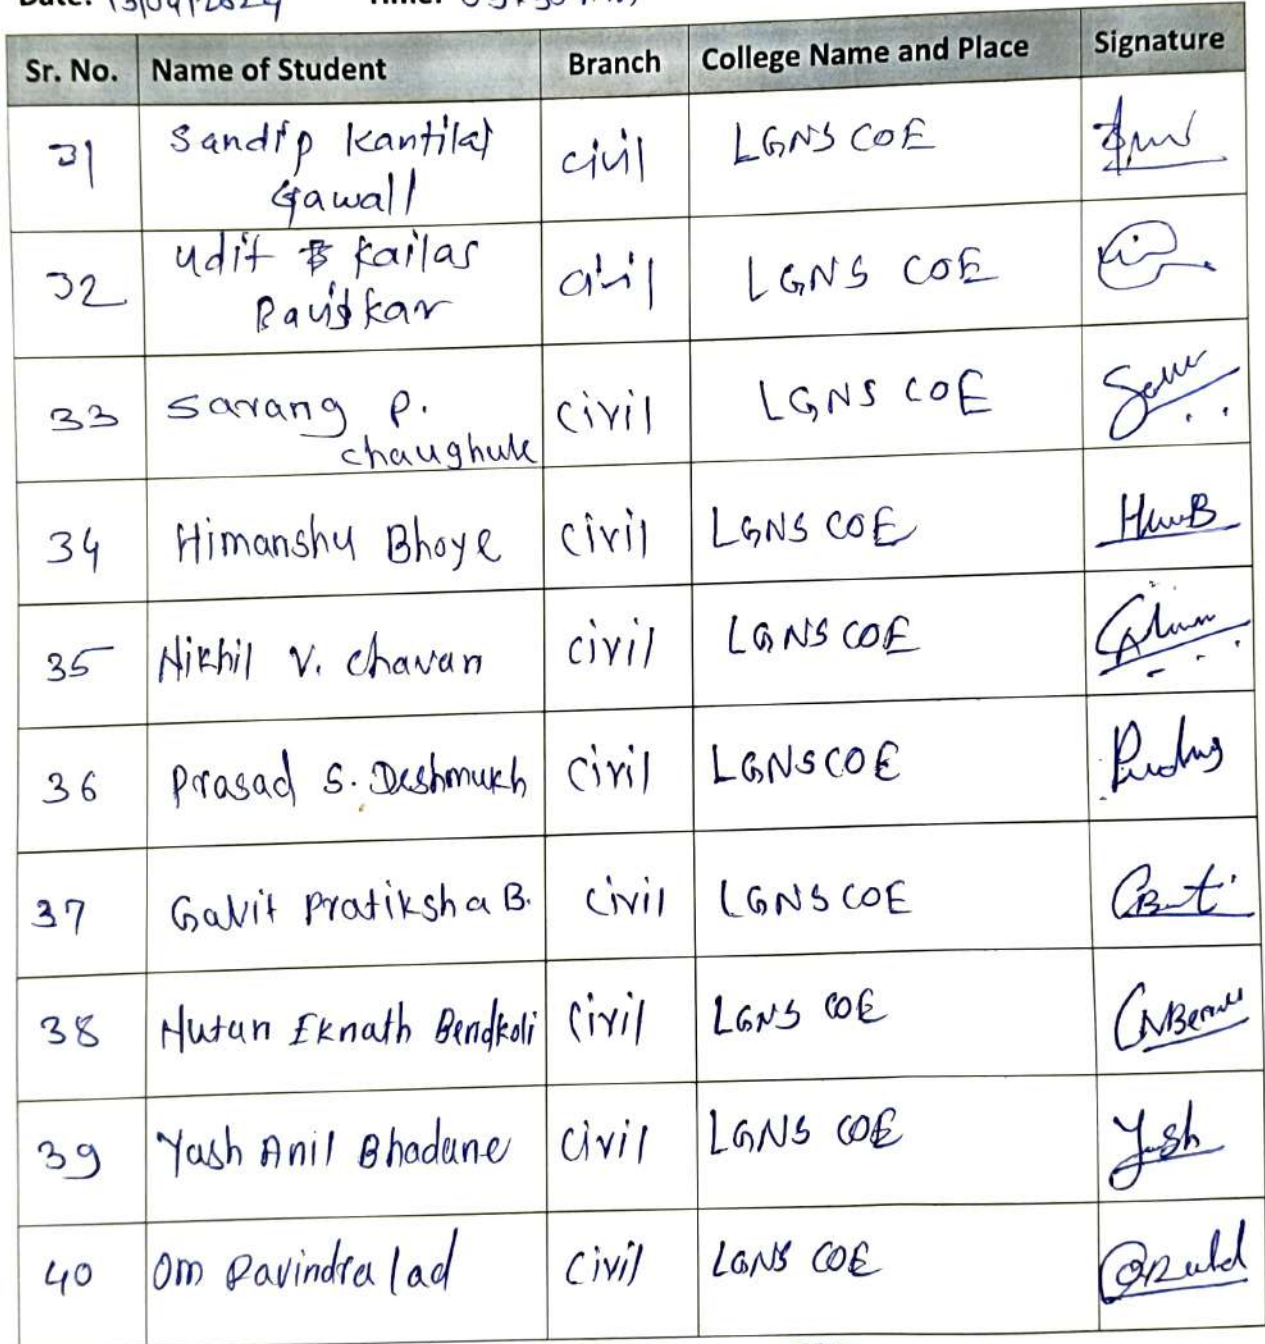 Date: 13/04/2024 Time:
Sr. No. Name of Student Branch College Name and Place Signature
31 Sandip Kantilal civil LGNS COE
Gawali
32 Udit Kailas civil LGNS COE
Baviskar
33 Sarang P. civil LGNS COE
chaughule
34 Himanshu Bhoye civil LGNS COE HimB
35 Nikhil V. Chavan civil LGNS COE
36 Prasad S. Deshmukh civil LGNSCOE
37 Gavit Pratiksha B. civil LGNSCOE
38 Nutan Eknath Bendkoli civil LGNS COE
39 Yash Anil Bhadane civil LGNS COE Yash
40 Om Ravindra lad civil LGNS COE